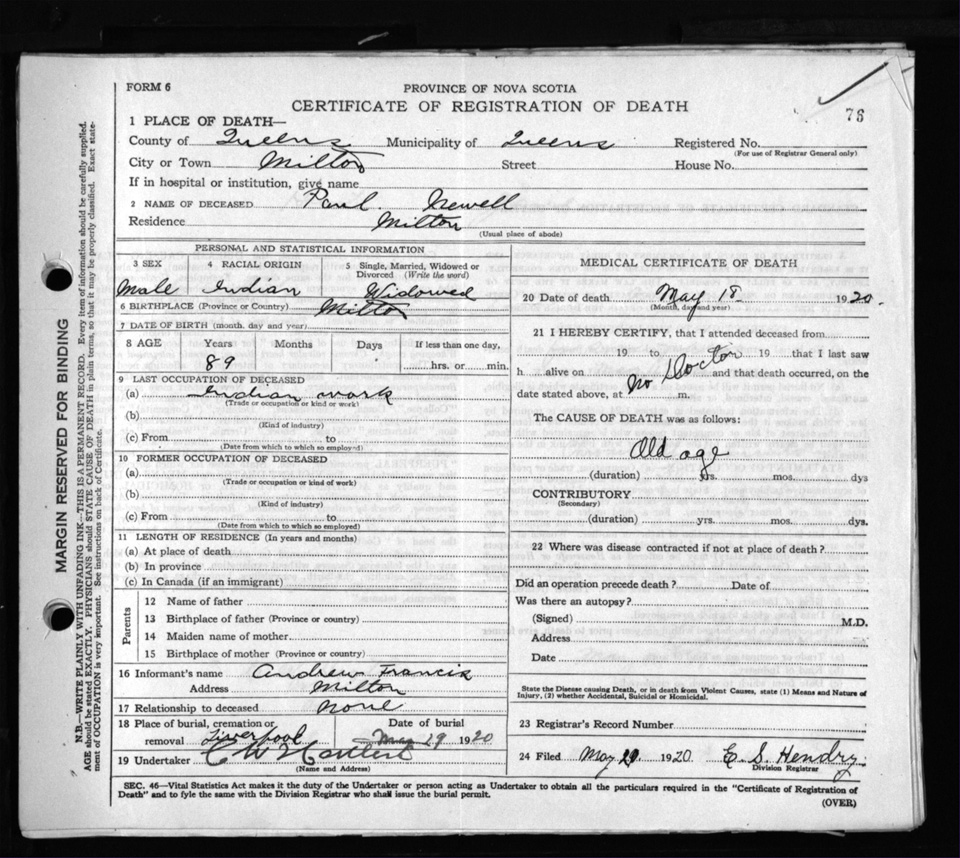 FORM 6
PROVINCE OF NOVA SCOTIA
CERTIFICATE OF REGISTRATION OF DEATH
76
1 PLACE OF DEATH—
County of Queens Municipality of Queens Registered No.
(For use of Registrar General only)
City or Town Milton Street House No.
If in hospital or institution, give name
2 NAME OF DECEASED Paul. Newell
Residence Milton
(Usual place of abode)
PERSONAL AND STATISTICAL INFORMATION
3 SEX 4 RACIAL ORIGIN 5 Single, Married, Widowed or Divorced (Write the word)
Male Indian Widowed
6 BIRTHPLACE (Province or Country) Milton
7 DATE OF BIRTH (month, day and year)
8 AGE Years Months Days If less than one day,
89 hrs. or min.
9 LAST OCCUPATION OF DECEASED
(a) Indian work
(Trade or occupation or kind or work)
(b)
(Kind of industry)
(c) From to
(Date from which to which so employed)
10 FORMER OCCUPATION OF DECEASED
(a)
(Trade or occupation or kind of work)
(b)
(Kind of industry)
(c) From to
(Date from which to which so employed)
11 LENGTH OF RESIDENCE (In years and months)
(a) At place of death
(b) In province
(c) In Canada (if an immigrant)
Parents
12 Name of father
13 Birthplace of father (Province or country)
14 Maiden name of mother
15 Birthplace of mother (Province or country)
16 Informant's name Andrew Francis
Address Milton
17 Relationship to deceased none
18 Place of burial, cremation or Date of burial
removal Liverpool May 19 1920
19 Undertaker C W
(Name and Address)
MEDICAL CERTIFICATE OF DEATH
20 Date of death May 18 1920.
(Month, day and year)
21 I HEREBY CERTIFY, that I attended deceased from
19 to 19 that I last saw
h alive on No Doctor and that death occurred, on the
date stated above, at m.
The CAUSE OF DEATH was as follows:
Old age
(duration) yrs. mos. dys
CONTRIBUTORY
(Secondary)
(duration) yrs. mos. dys.
22 Where was disease contracted if not at place of death?
Did an operation precede death? Date of
Was there an autopsy?
(Signed) M.D.
Address
Date
State the Disease causing Death, or in death from Violent Causes, state (1) Means and Nature of
Injury, (2) whether Accidental, Suicidal or Homicidal.
23 Registrar's Record Number
24 Filed May 1920 E. S. Hendry.
Division Registrar
SEC. 46—Vital Statistics Act makes it the duty of the Undertaker or person acting as Undertaker to obtain all the particulars required in the "Certificate of Registration of
Death" and to fyle the same with the Division Registrar who shall issue the burial permit.
(OVER)
MARGIN RESERVED FOR BINDING
N.B.—WRITE PLAINLY WITH UNFADING INK—THIS IS A PERMANENT RECORD. Every item of information should be carefully supplied.
AGE should be stated EXACTLY. PHYSICIANS should STATE CAUSE OF DEATH in plain terms, so that it may be properly classified. Exact state-
ment of OCCUPATION is very important. See instructions on back of Certificate.